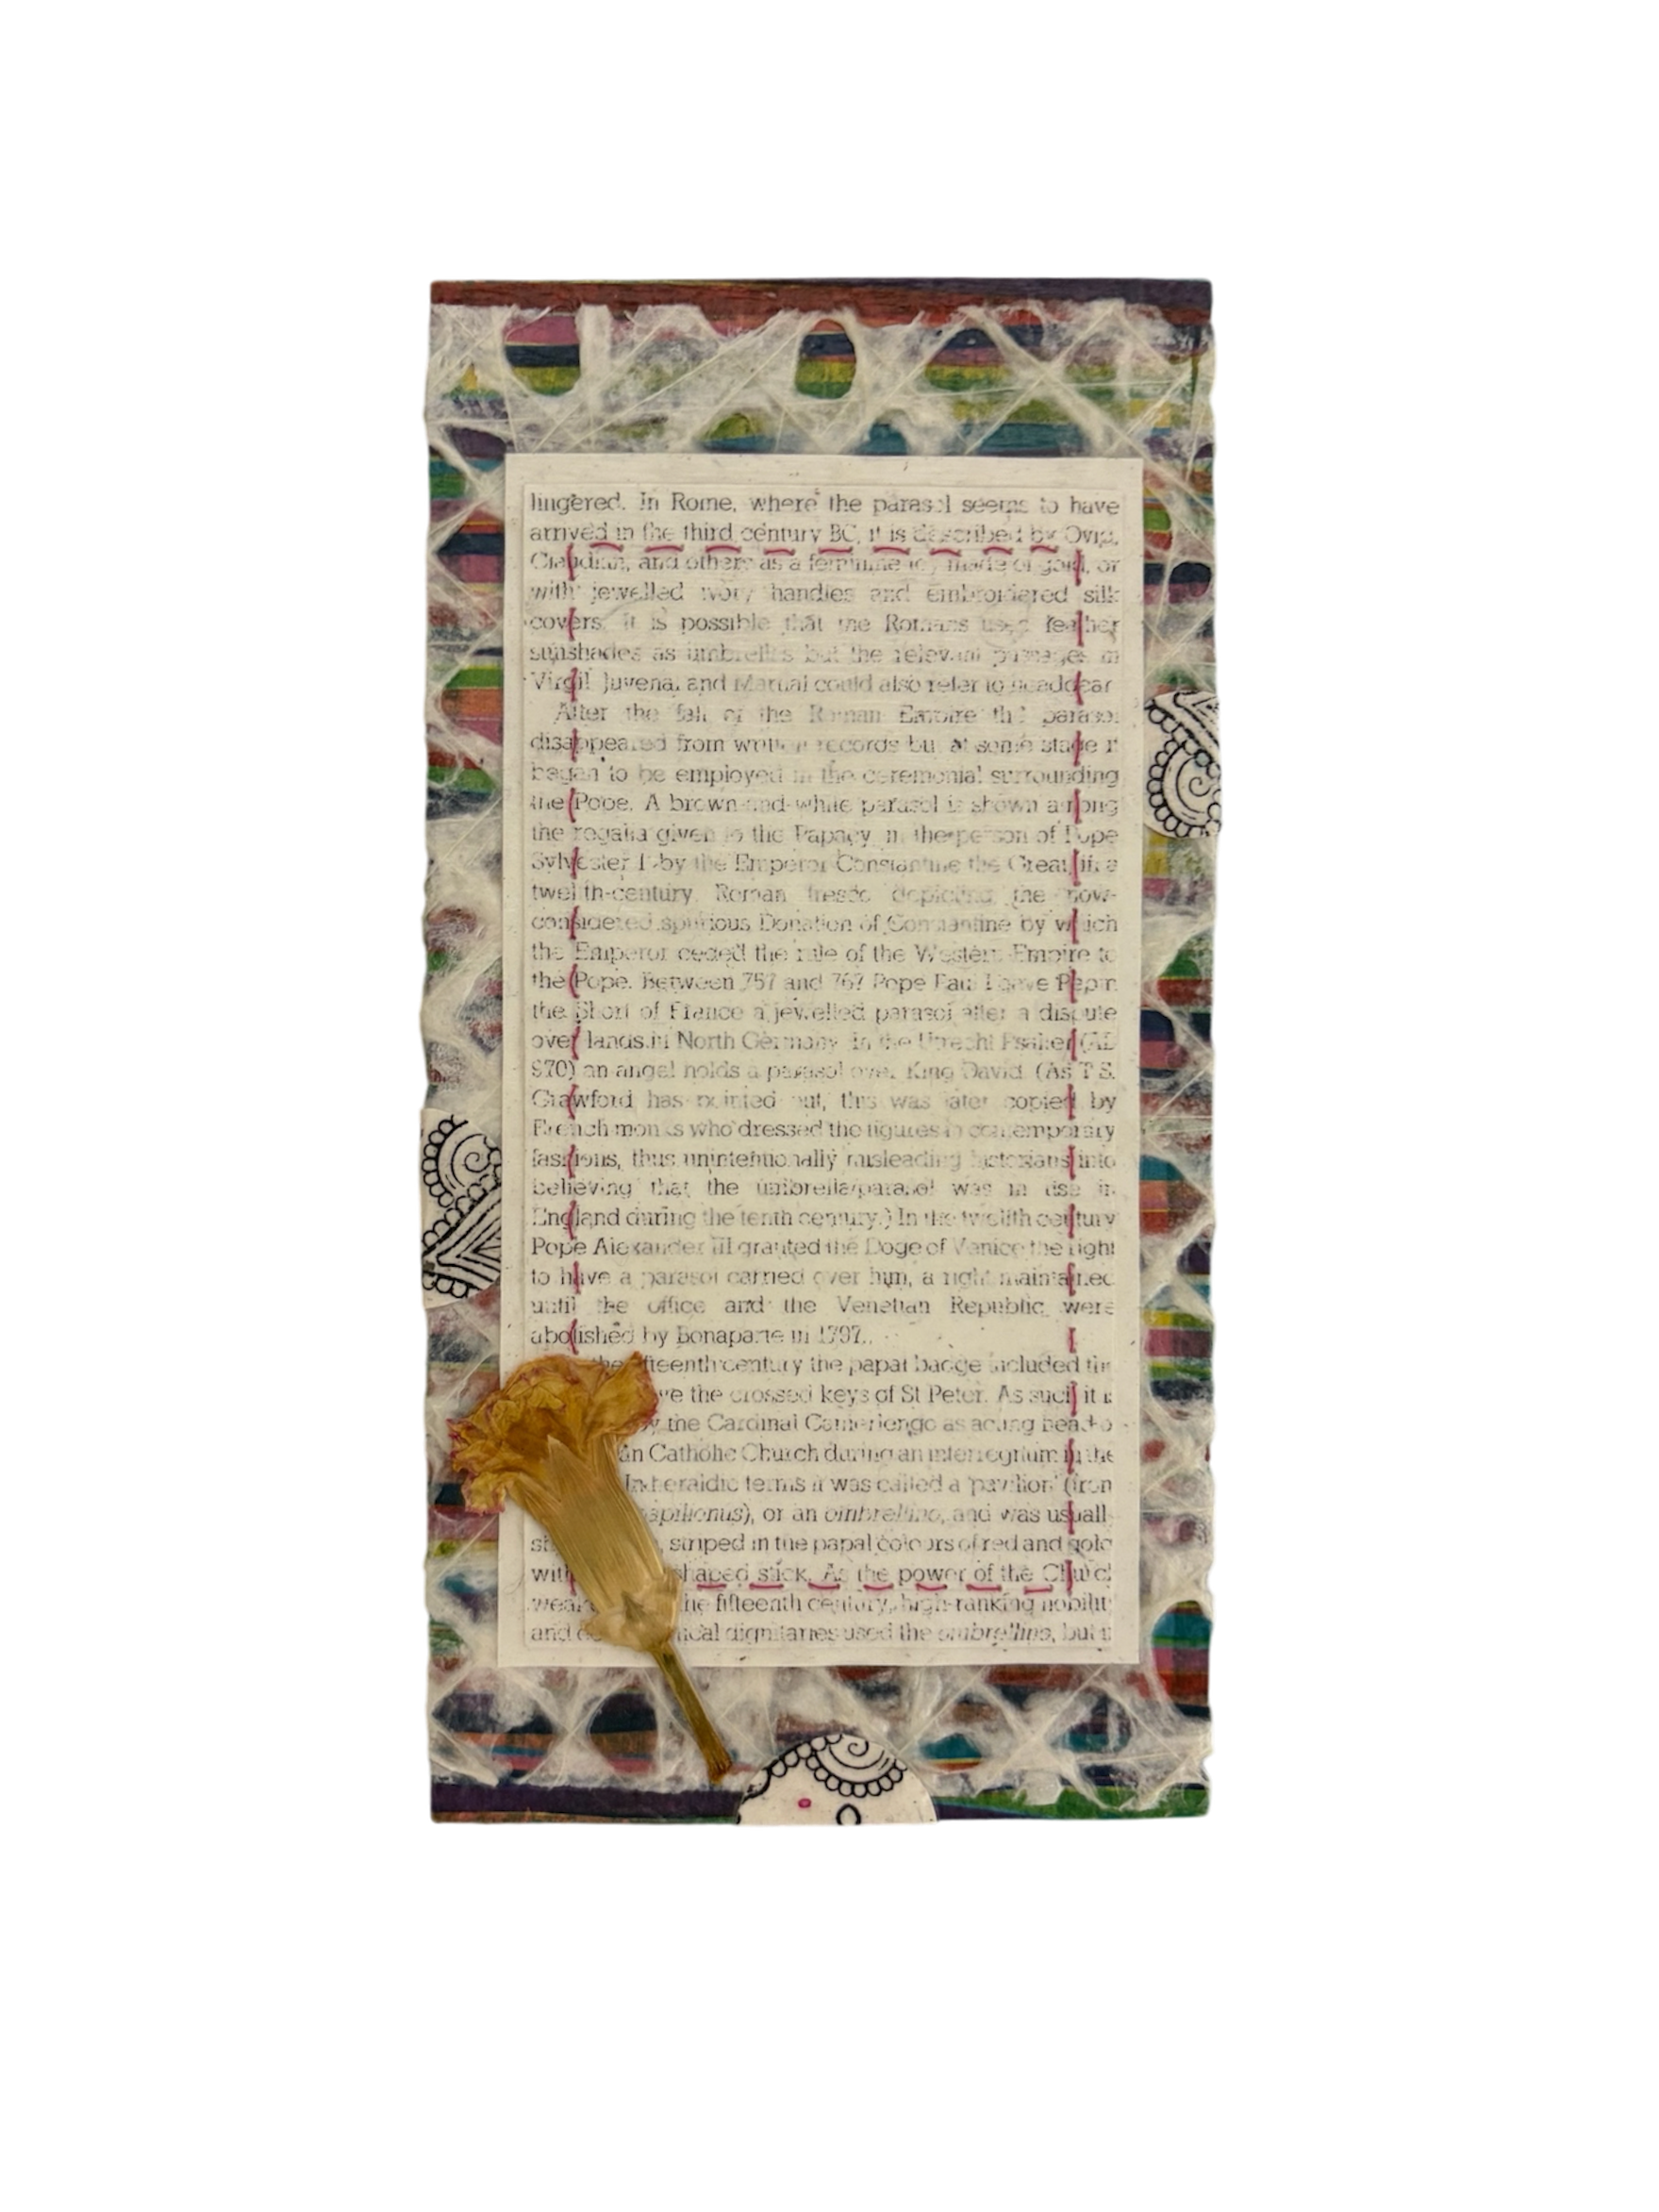 lingered. In Rome, where the parasol seems to have
arrived in the third century BC, it is described by Ovid,
Claudian, and others as a feminine toy made of gold, or
with jewelled ivory handles and embroidered silk
covers. It is possible that the Romans used feather
sunshades as umbrellas but the relevant passages in
Virgil, Juvenal, and Martial could also refer to headgear
After the fall of the Roman Empire the parasol
disappeared from written records but at some stage it
began to be employed in the ceremonial surrounding
the Pope. A brown-and-white parasol is shown among
the regalia given to the Papacy in the person of Pope
Sylvester I by the Emperor Constantine the Great in a
twelfth-century Roman fresco depicting the now-
considered spurious Donation of Constantine by which
the Emperor ceded the rule of the Western Empire to
the Pope. Between 757 and 767 Pope Paul I gave Pepin
the Short of France a jewelled parasol after a dispute
over lands in North Germany. In the Utrecht Psalter (AD
970) an angel holds a parasol over King David. (As T.S.
Crawford has pointed out, this was later copied by
French monks who dressed the figures in contemporary
fashions, thus unintentionally misleading historians into
believing that the umbrella/parasol was in use in
England during the tenth century.) In the twelfth century
Pope Alexander III granted the Doge of Venice the right
to have a parasol carried over him, a right maintained
until the office and the Venetian Republic were
abolished by Bonaparte in 1797.
the fifteenth century the papal badge included the
ve the crossed keys of St Peter. As such it i
y the Cardinal Camerlengo as acting head o
an Catholic Church during an interregnum in the
In heraldic terms it was called a 'pavilion' (from
apilionus), or an ombrellino, and was usuall
st , striped in the papal colours of red and gold
wit shaped stick. As the power of the Churc
wea he fifteenth century, high-ranking nobilit
and ical dignitaries used the ombrellino, but i